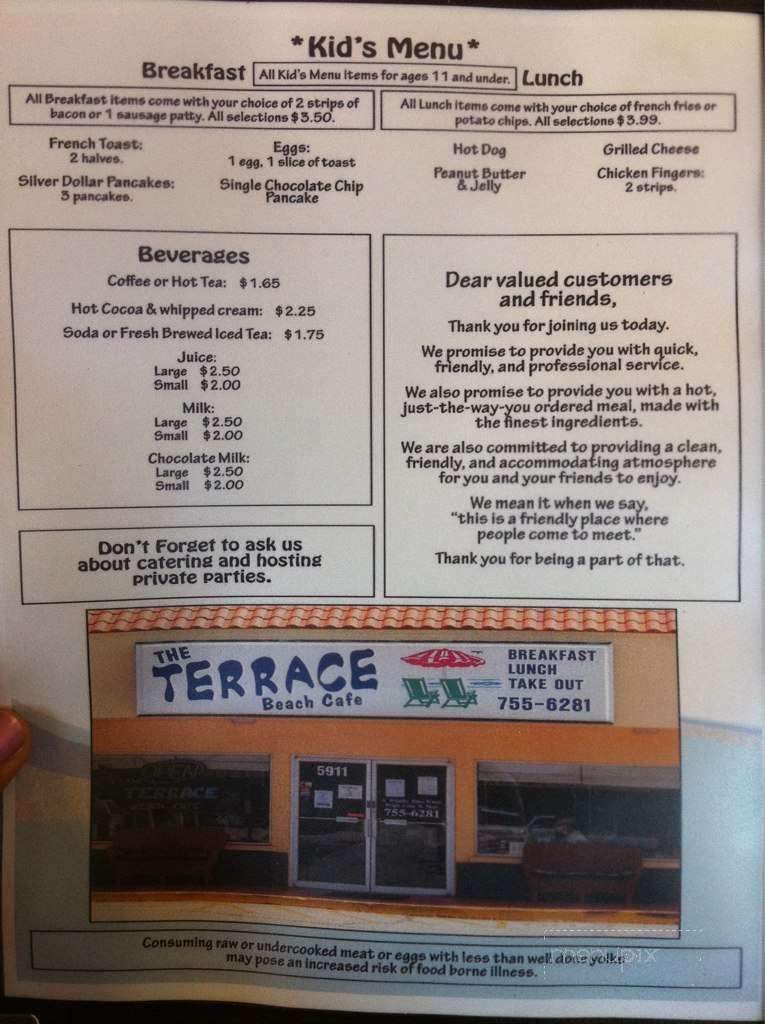 *Kid's Menu*
Breakfast
All Kid's Menu items for ages 11 and under.
Lunch
All Breakfast items come with your choice of 2 strips of
bacon or 1 sausage patty. All selections $3.50.
French Toast:
2 halves.
Eggs:
1 egg, 1 slice of toast
Silver Dollar Pancakes:
3 pancakes.
Single Chocolate Chip
Pancake
All Lunch items come with your choice of french fries or
potato chips. All selections $3.99.
Hot Dog
Grilled Cheese
Peanut Butter
& Jelly
Chicken Fingers:
2 strips.
Beverages
Coffee or Hot Tea: $1.65
Hot Cocoa & whipped cream: $2.25
Soda or Fresh Brewed Iced Tea: $1.75
Juice:
Large $2.50
Small $2.00
Milk:
Large $2.50
Small $2.00
Chocolate Milk:
Large $2.50
Small $2.00
Don't Forget to ask us
about catering and hosting
private parties.
Dear valued customers
and friends,
Thank you for joining us today.
We promise to provide you with quick,
friendly, and professional service.
We also promise to provide you with a hot,
just-the-way-you ordered meal, made with
the finest ingredients.
We are also committed to providing a clean,
friendly, and accommodating atmosphere
for you and your friends to enjoy.
We mean it when we say,
"this is a friendly place where
people come to meet."
Thank you for being a part of that.
THE
TERRACE
Beach Cafe
BREAKFAST
LUNCH
TAKE OUT
755-6281
OPEN
TERRACE
5911
755-6281
Consuming raw or undercooked meat or eggs with less than well done yolks
may pose an increased risk of food borne illness.
menupix